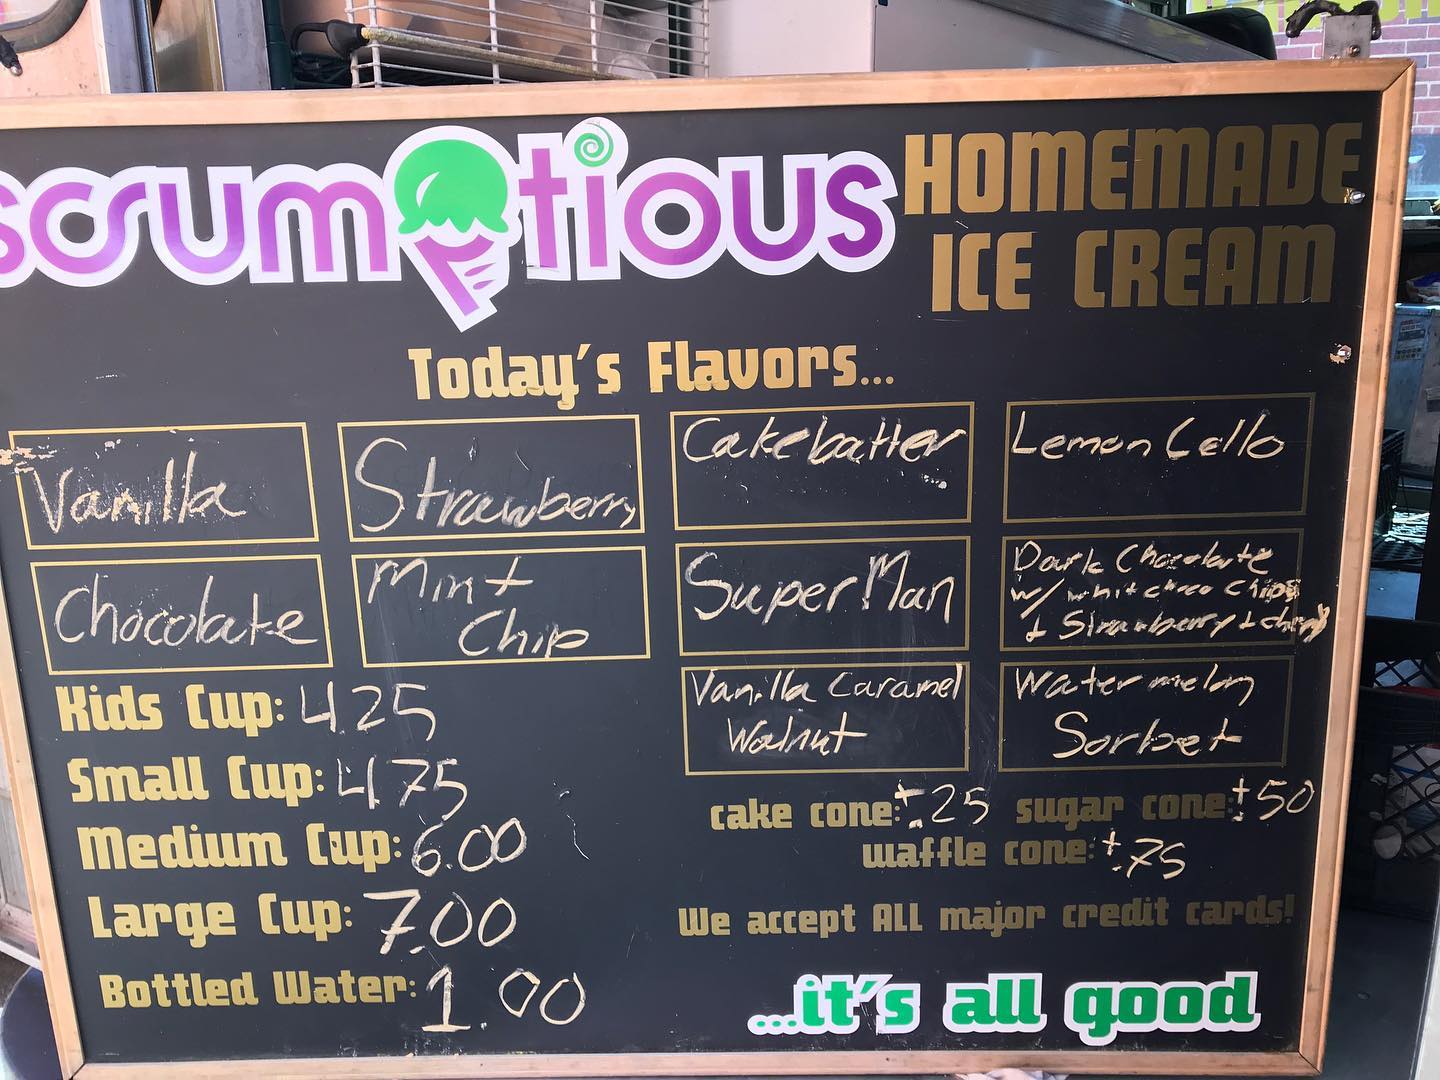 scrumptious
HOMEMADE
ICE CREAM
Today's Flavors...
Vanilla
Strawberry
Cakebatter
Lemon Cello
Chocolate
Mint
Chip
SuperMan
Dark Chocolate
w/ whit choco chips
+ Strawberry + cherry
Vanilla Caramel
Walnut
Watermelon
Sorbet
Kids Cup: 4.25
Small Cup: 4.75
Medium Cup: 6.00
Large Cup: 7.00
Bottled Water: 1.00
cake cone: +.25 sugar cone: +.50
waffle cone: +.75
We accept ALL major credit cards!
...it's all good